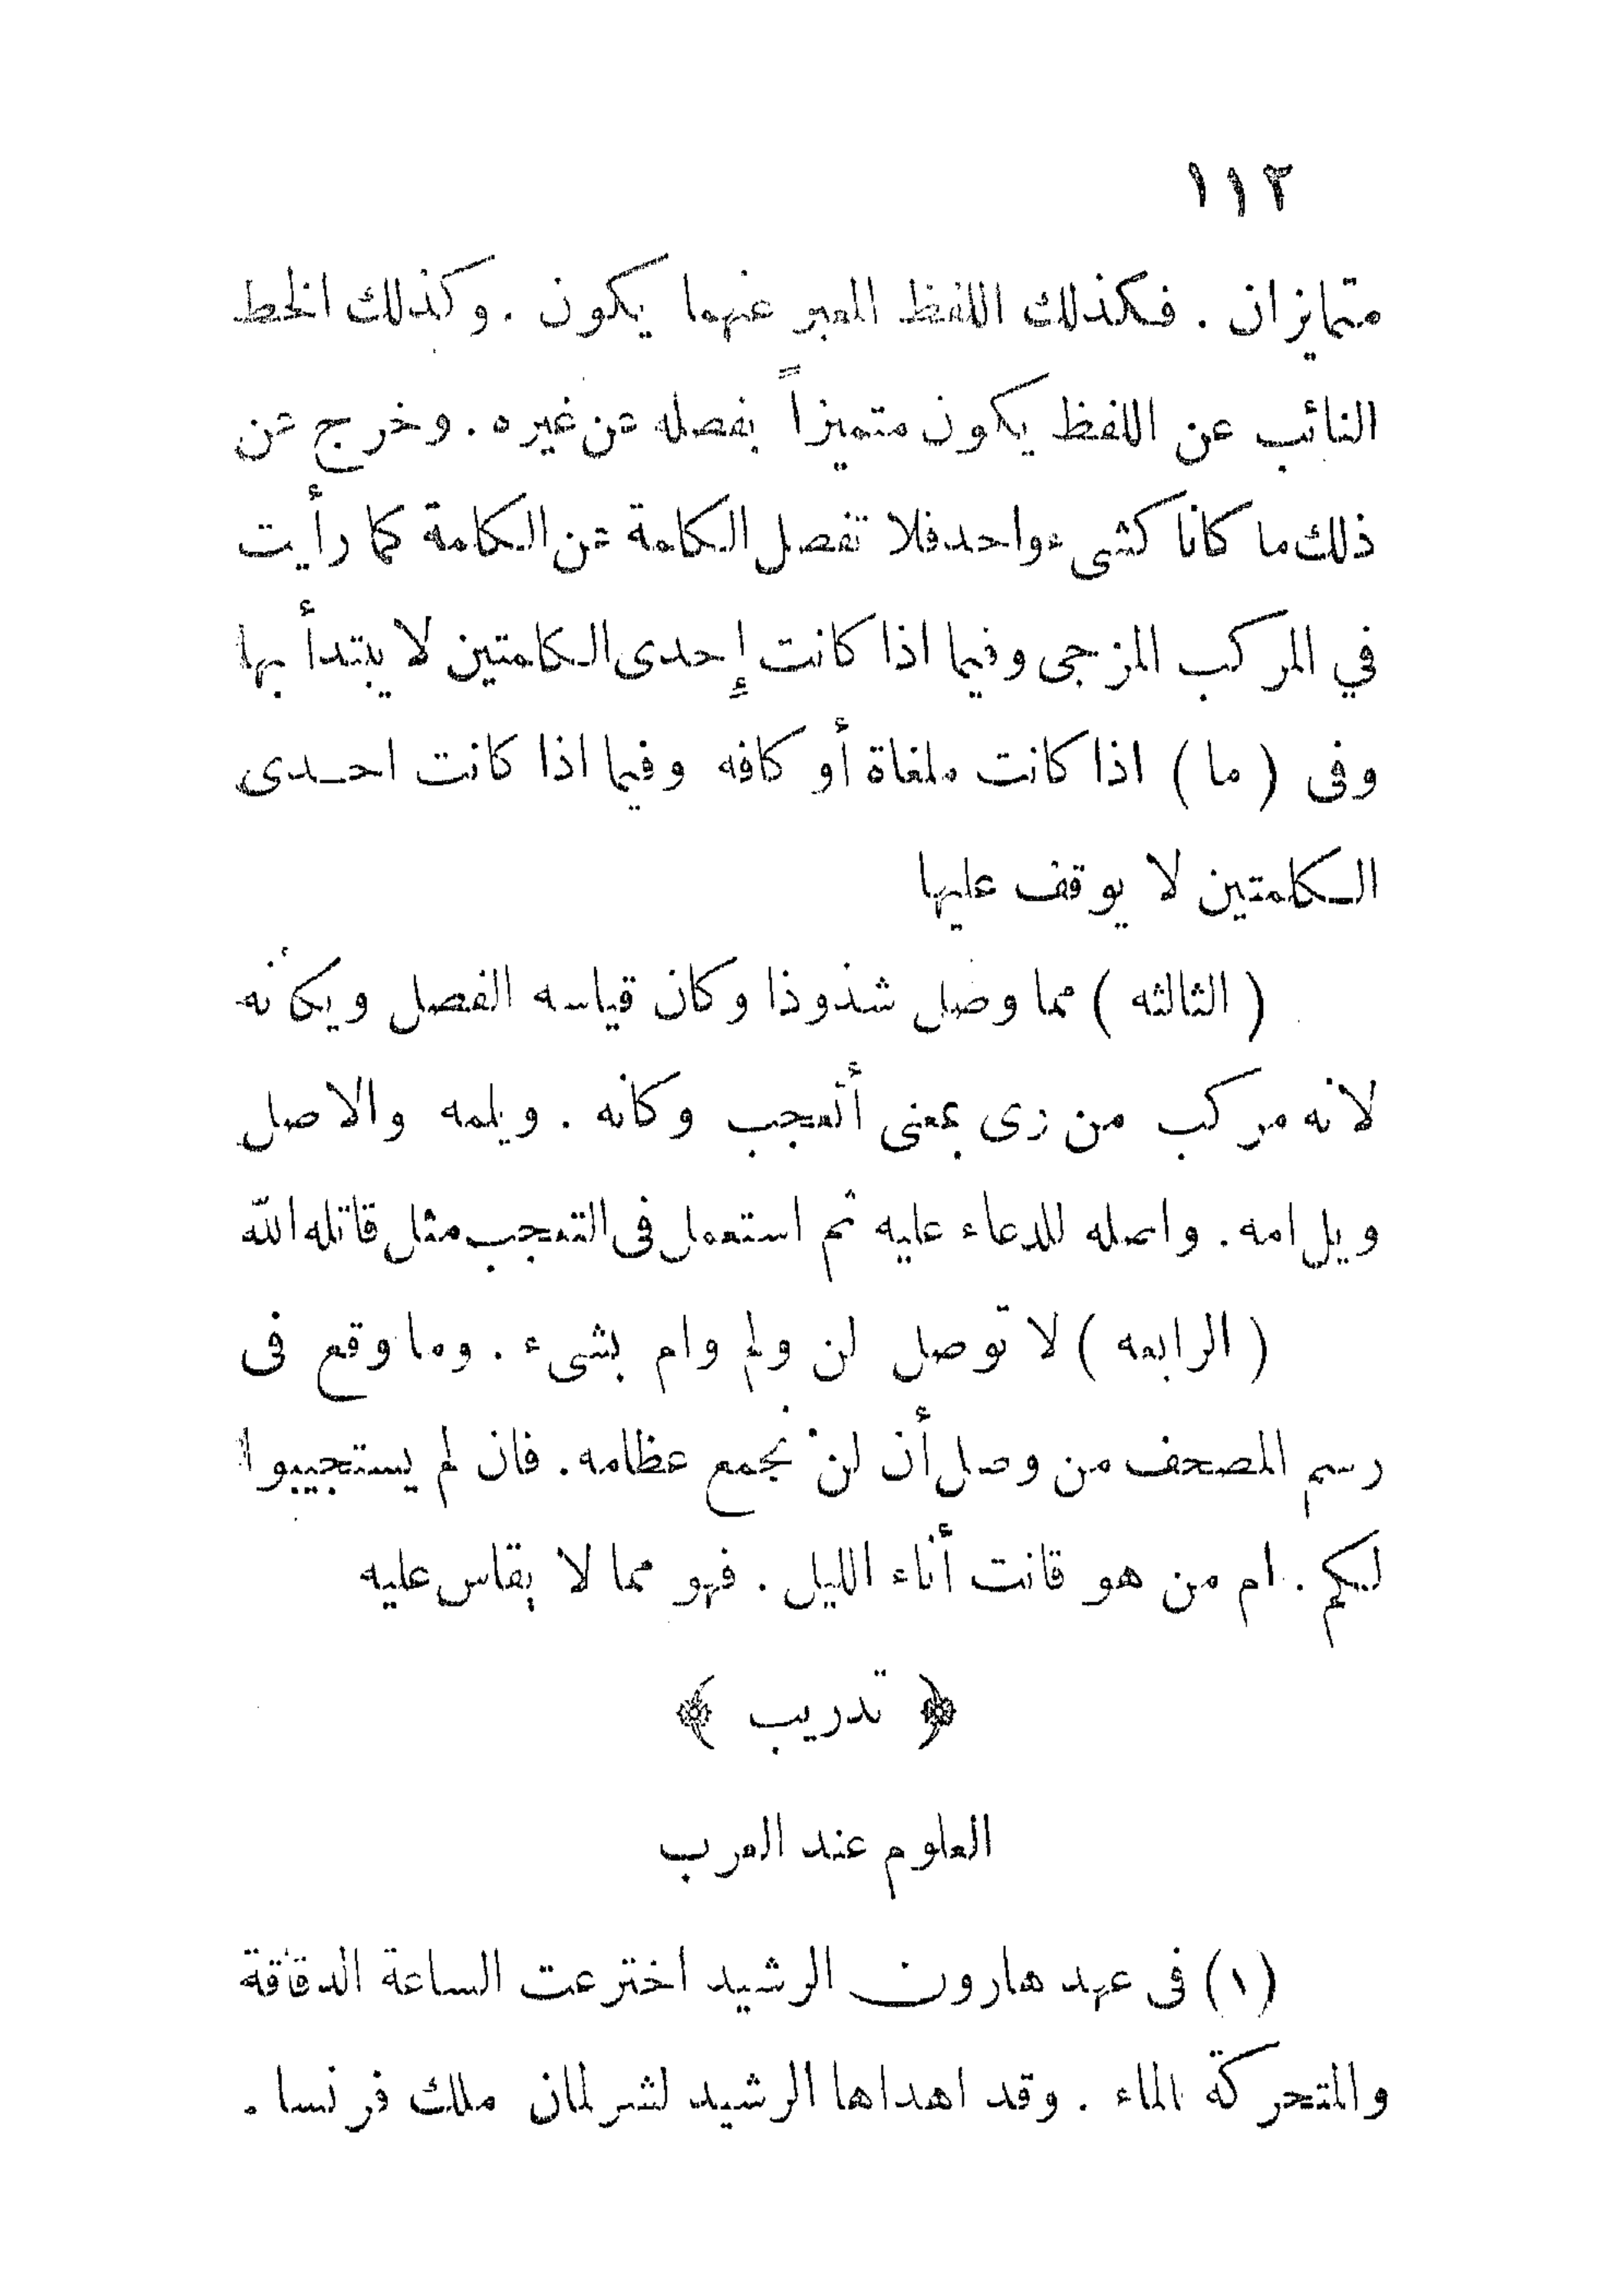 ١١٢
متمايزان . فكذلك اللفظ المعبر عنهما يكون . وكذلك الخط
النائب عن اللفظ يكون متميزاً بفصله عن غيره . وخرج عن
ذلك ما كانا كشىء واحد فلا تفصل الكلمة عن الكلمة كما رأيت
في المركب المزجى وفيما اذا كانت إحدى الكلمتين لا يبتدأ بها
وفى ( ما ) اذا كانت ملغاة أو كافه وفيما اذا كانت احدى
الكلمتين لا يوقف عليها
( الثالثه ) مما وصل شذوذا وكان قياسه الفصل ويكأنه
لانه مركب من زى بمعنى أتعجب وكانه . ويلمه والاصل
ويل امه . واصله للدعاء عليه ثم استعمل فى التعجب مثل قاتله الله
( الرابعه ) لا توصل لن ولم وام بشىء . وما وقع فى
رسم المصحف من وصل أن لن نجمع عظامه . فان لم يستجيبوا
لكم . ام من هو قانت أناء الليل . فهو مما لا يقاس عليه
﴿ تدريب ﴾
العلوم عند العرب
(١) فى عهد هارون الرشيد اخترعت الساعة الدقاقة
والمتحركة الماء . وقد اهداها الرشيد لشرلمان ملك فرنسا .